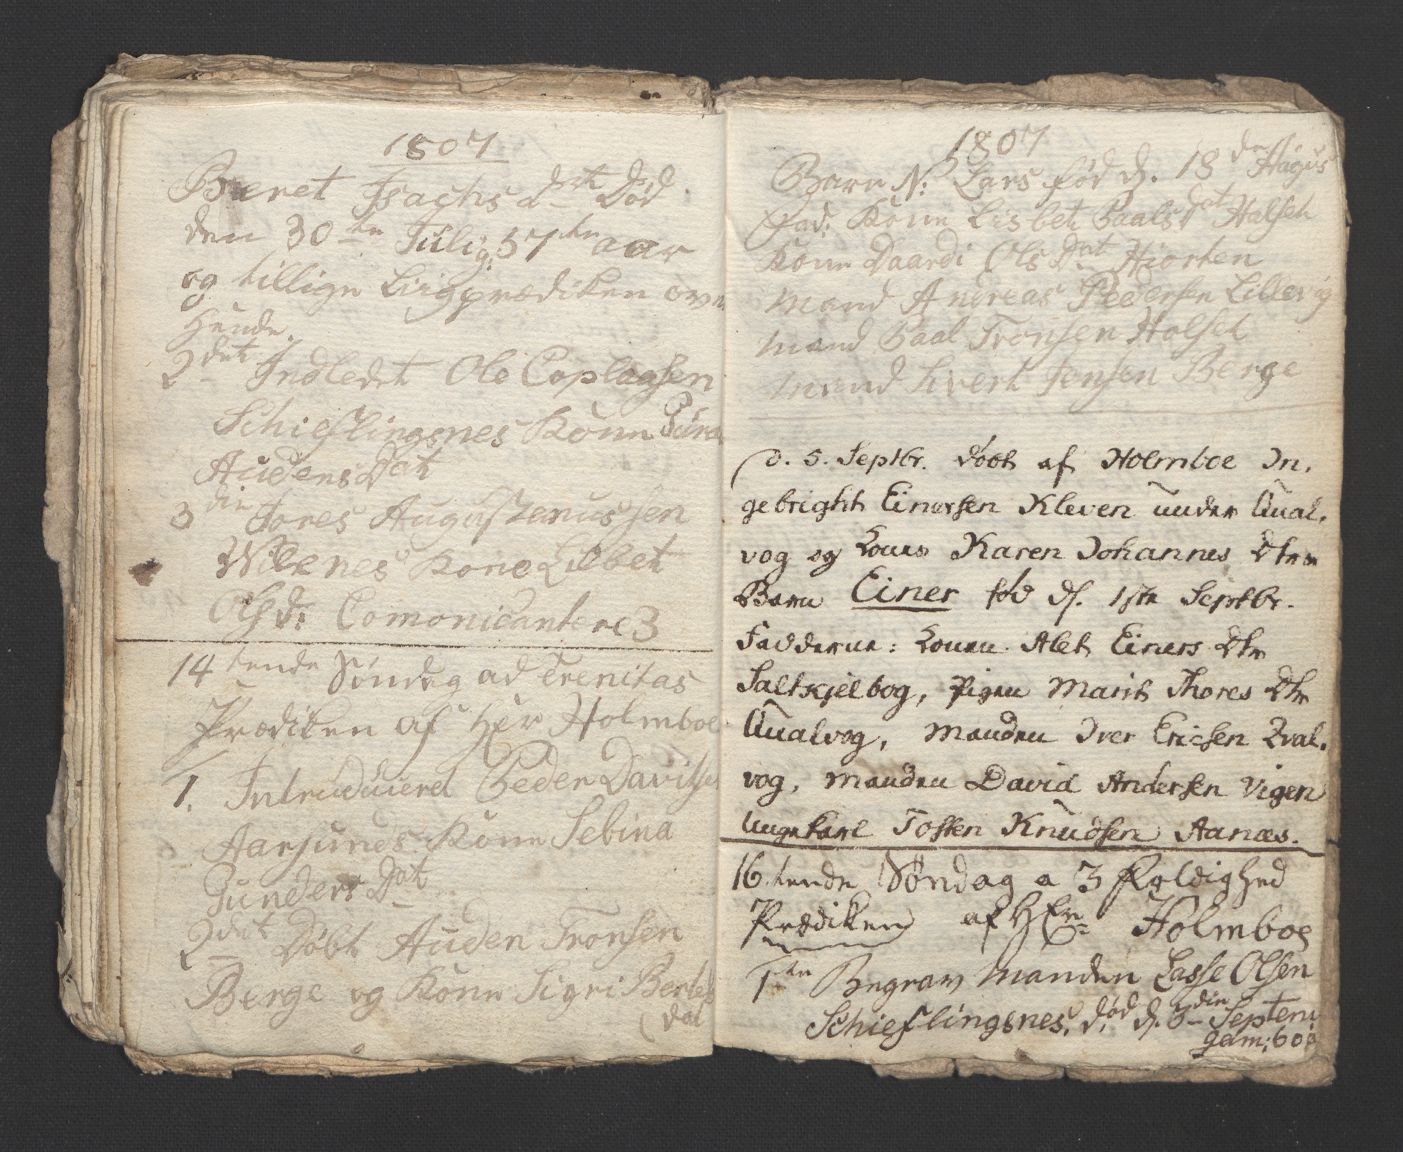 1807
Beret Isachs dtr Død
den 30te Julig. 57tn aar
og tillign Liigprædiken over
hende.
2det Indledet Ole Coplagsen
Schieflingsnes Konn Gura
Audens Dat
3die Tores Augustenussen
Wiknes Kone Lisbet
Ols d: Comonicantere 3
14tende Søndag ad Trenitas
Prædiken af Her Holmboe
1. Intruduieret Peder Davitsen
Aarsunds Konn Sebina
Gunders Dat
2det Døbt Auden Tronsen
Berge og Konn Sigri Berte
dat
1807
Barn N: Lars fød d. 18den Augus
fad: Konn Lisbet Paals dat Halset
Konn Daardi Ols Dat Hiorten
mand Andreas Pedersen Lillevig
mand Paal Tronsen Halset
mand Sivert Jensen Berge
d. 5. Septbr. døbt af Holmboe In,
gebright Einersen Kleven under Qual,
vog og Konen Karen Johannes Dtr
Barn Einer fød d. 1ste Septbr.
Fadderne: Konen Alet Einers Dtr
Saltkjelbog, Pigen Marit Thores Dtr
Qualvog, Manden Iver Ericsen Qval,
vog, Manden David Andersen Vigen
Ungekarl Tosten Knudsen Aanæs.
16tende Søndag a 3 foldighed
Prædiken af HEr: Holmboe
1tn Begrav Manden Lasse Olsen
Schieflingsnes, død d. 3die Septem
gam: 60